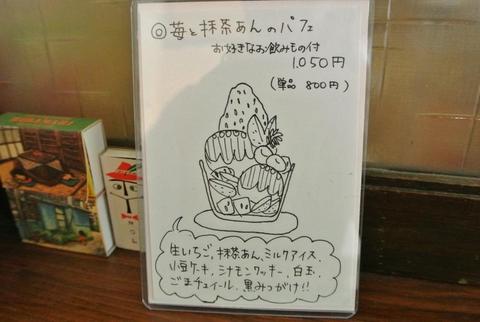 ◎苺と抹茶あんのパフェ
お好きなお飲みもの付
1,050円
(単品 800円)
生いちご、抹茶あん、ミルクアイス、
小豆ケーキ、シナモンクッキー、白玉、
ごまチュイール、黒みつがけ!!